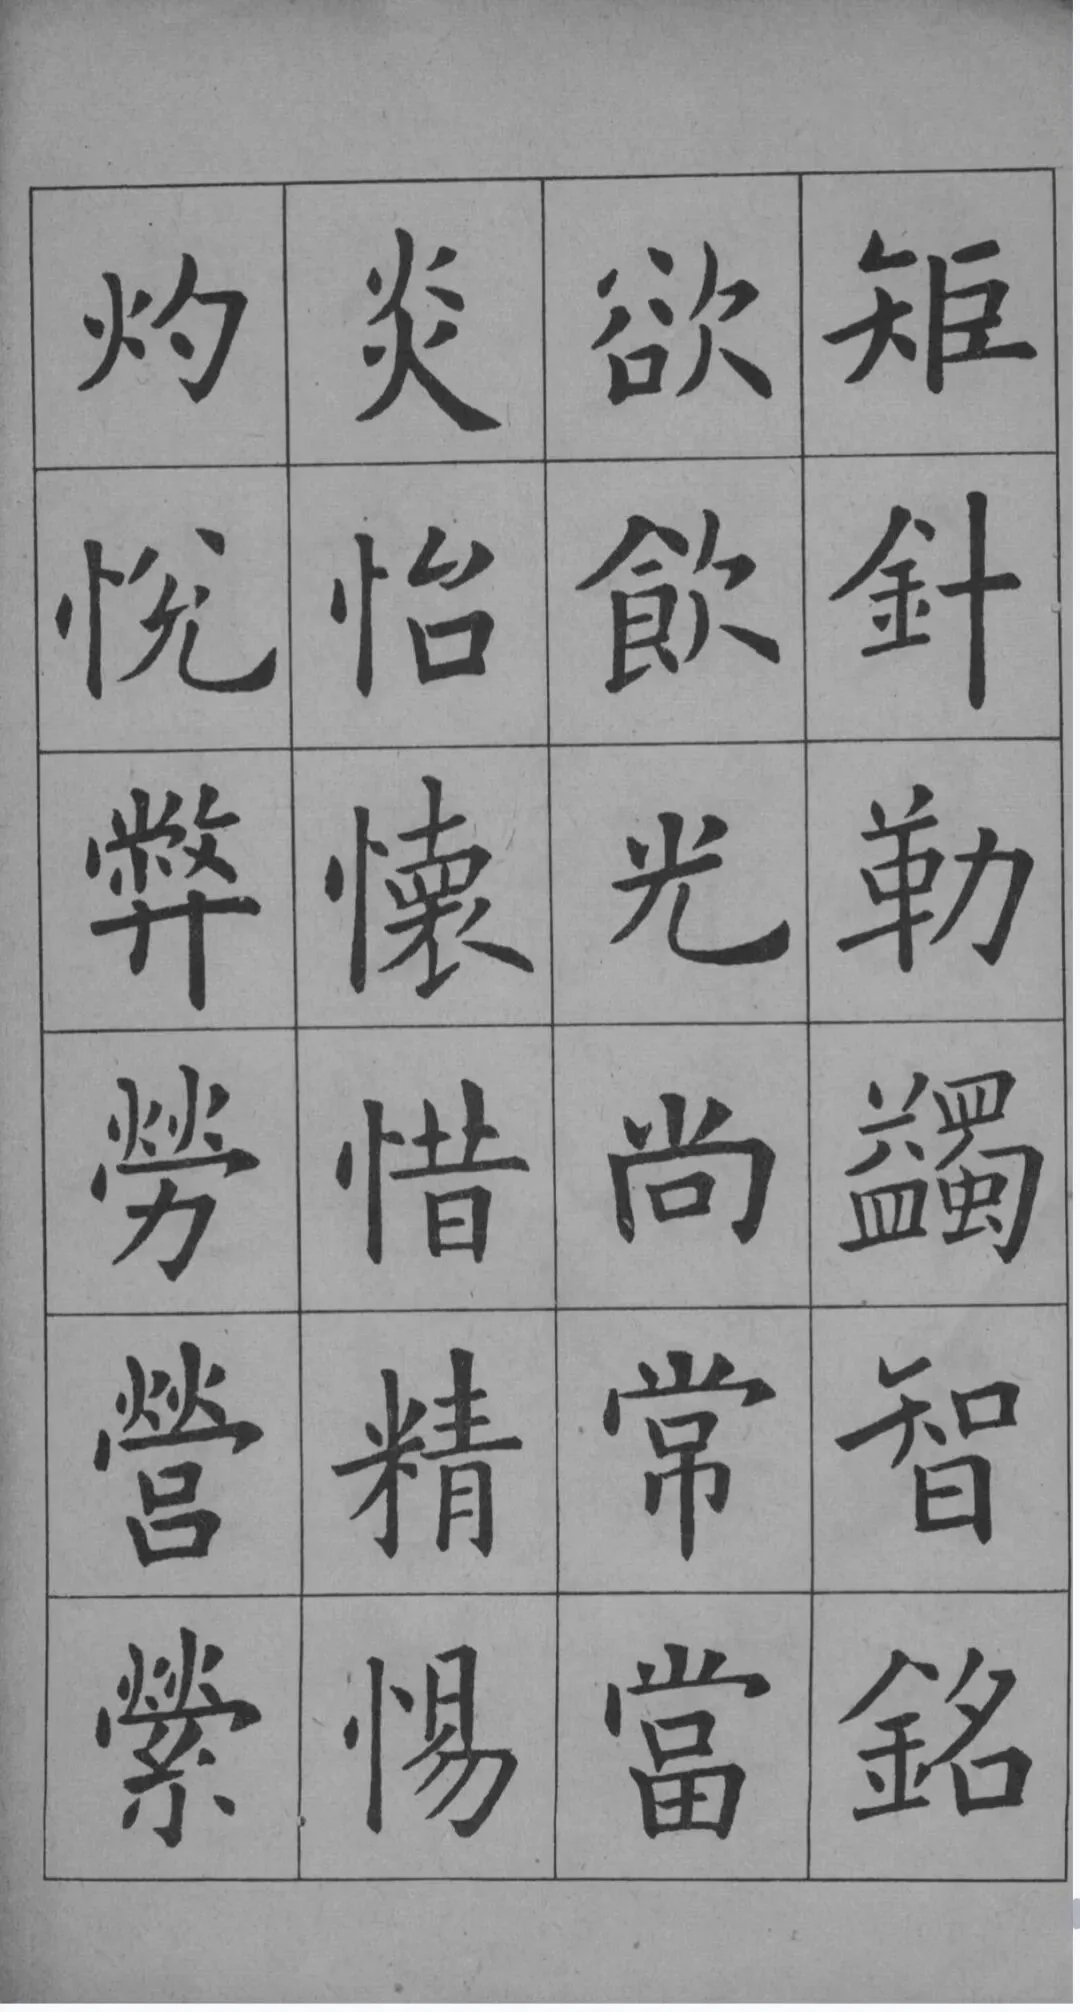 矩針勒蠲智銘
欲飲光尚常當
炎怡懷惜精惕
灼悅弊勞營縈